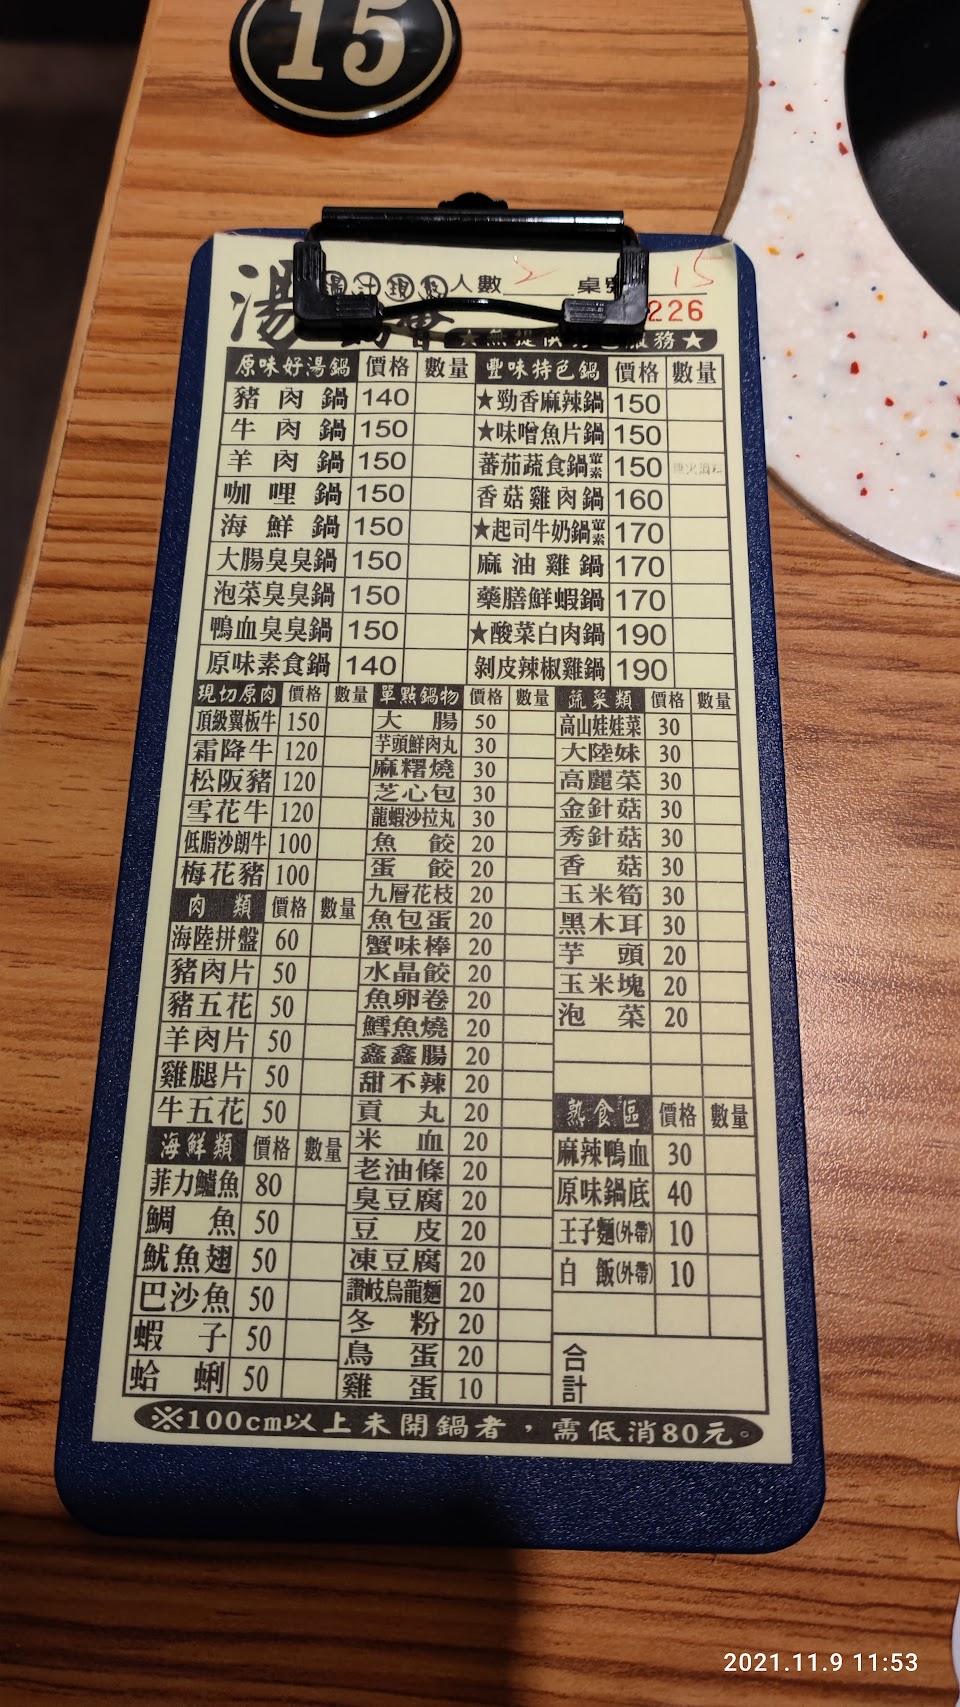 15
湯
人數 2 桌號 15
226
原味好湯鍋 價格 數量 豐味特色鍋 價格 數量
豬肉鍋 140 ★勁香麻辣鍋 150
牛肉鍋 150 ★味噌魚片鍋 150
羊肉鍋 150 蕃茄蔬食鍋葷素 150
咖哩鍋 150 香菇雞肉鍋 160
海鮮鍋 150 ★起司牛奶鍋葷素 170
大腸臭臭鍋 150 麻油雞鍋 170
泡菜臭臭鍋 150 藥膳鮮蝦鍋 170
鴨血臭臭鍋 150 ★酸菜白肉鍋 190
原味素食鍋 140 剝皮辣椒雞鍋 190
現切原肉 價格 數量
頂級翼板牛 150
霜降牛 120
松阪豬 120
雪花牛 120
低脂沙朗牛 100
梅花豬 100
肉類 價格 數量
海陸拼盤 60
豬肉片 50
豬五花 50
羊肉片 50
雞腿片 50
牛五花 50
海鮮類 價格 數量
菲力鱸魚 80
鯛魚 50
魷魚翅 50
巴沙魚 50
蝦子 50
蛤蜊 50
單點鍋物 價格 數量
大腸 50
芋頭鮮肉丸 30
麻糬燒 30
芝心包 30
龍蝦沙拉丸 30
魚餃 20
蛋餃 20
九層花枝 20
魚包蛋 20
蟹味棒 20
水晶餃 20
魚卵卷 20
鱈魚燒 20
鑫鑫腸 20
甜不辣 20
貢丸 20
米血 20
老油條 20
臭豆腐 20
豆皮 20
凍豆腐 20
讚岐烏龍麵 20
冬粉 20
鳥蛋 20
雞蛋 10
蔬菜類 價格 數量
高山娃娃菜 30
大陸妹 30
高麗菜 30
金針菇 30
秀針菇 30
香菇 30
玉米筍 30
黑木耳 30
芋頭 20
玉米塊 20
泡菜 20
熟食區 價格 數量
麻辣鴨血 30
原味鍋底 40
王子麵(外帶) 10
白飯(外帶) 10
合計
※100cm以上未開鍋者，需低消80元。
2021.11.9 11:53